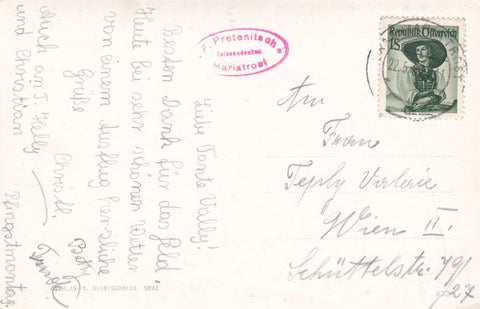 Liebe Tante Vally!
Besten Dank für das Geld,
Heute bei sehr schönen Wetter
von einem Ausflug herzliche
Grüße
Christl.
Betty
Trude
Auch an T. Helly
und Christian
Pfingstmontag.
F. Pretenitsch
Reiseandenken
Mariatrost
Republik Österreich
1S
An
Frau
Teply Valerie
Wien II.
Schüttelstr. 79/
27
VERLAG A. SLANISCHNIGG GRAZ